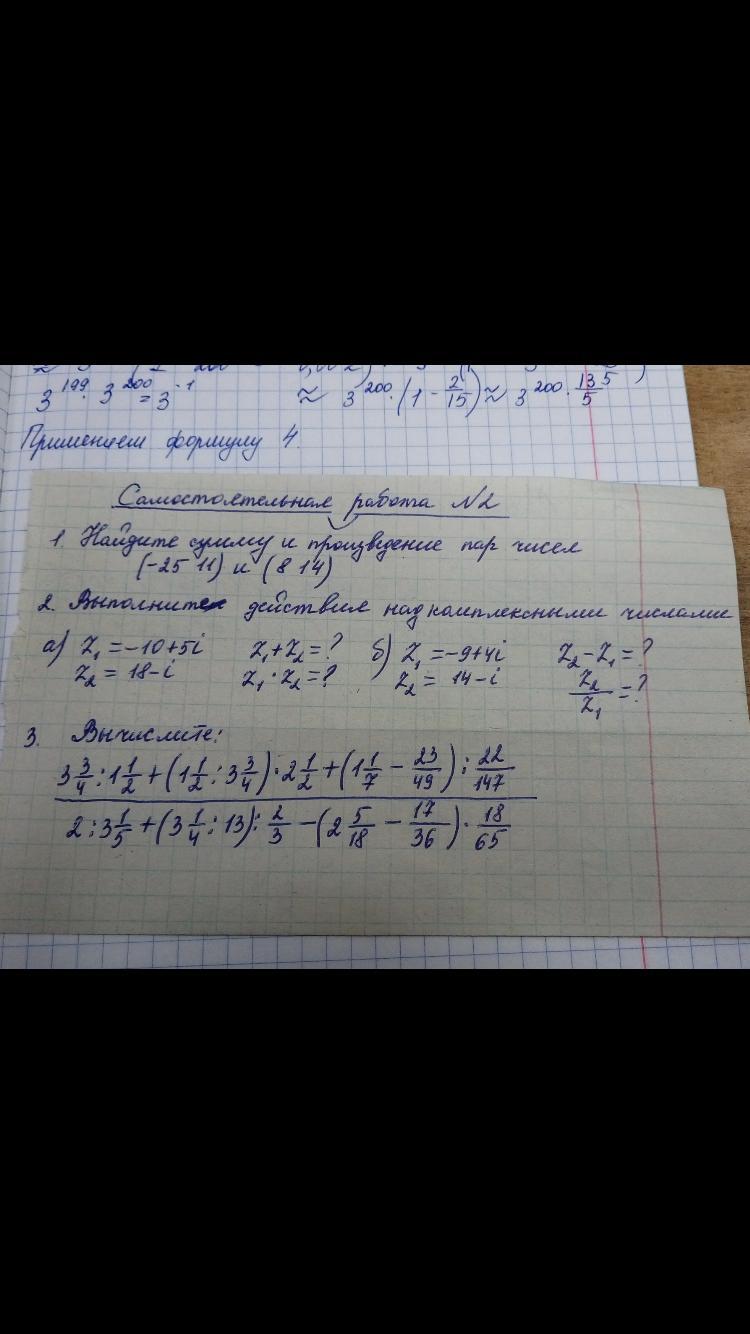 3^199 · 3^200 = 3^-1 ≈ 3^200 · (1 - 2/15) ≈ 3^200 · 13/5 5
Применяем формулу 4.
Самостоятельная работа №2
1. Найдите сумму и произведение пар чисел
(-25 11) и (8 14)
2. Выполните действия над комплексными числами
а) Z₁ = -10+5i Z₁+Z₂ = ? б) Z₁ = -9+4i Z₂-Z₁ = ?
Z₂ = 18-i Z₁·Z₂ = ? Z₂ = 14-i Z₂/Z₁ = ?
3. Вычислите:
3 3/4 : 1 1/2 + (1 1/2 : 3 3/4) · 2 1/2 + (1 1/7 - 23/49) : 22/147
2 : 3 1/5 + (3 1/4 : 13) : 2/3 - (2 5/18 - 17/36) · 18/65